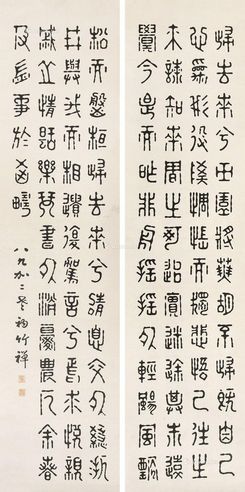 歸去來兮田園將蕪胡不歸既自以
心為形役奚惆悵而獨悲悟已往之
不諫知來者之可追實迷途其未遠
覺今是而昨非舟搖搖以輕颺風飄
松而盤桓歸去來兮請息交以絕游
世與我而相遺復駕言兮焉求悅親
戚之情話樂琴書以消憂農人余春
及有事於西疇
八九加二老衲竹禪